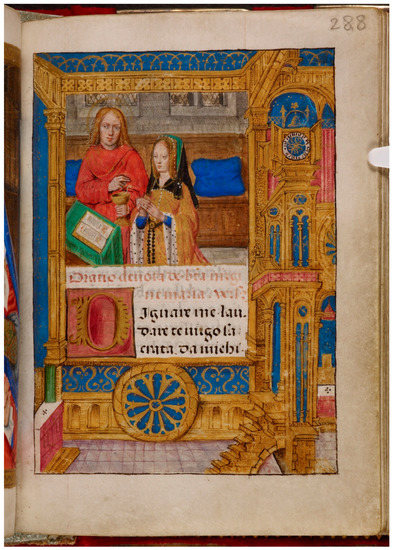 288
Oratio deuota de bt̄a virgi
ne maria.
DIgnare me lau
dare te virgo sa
crata. Da michi